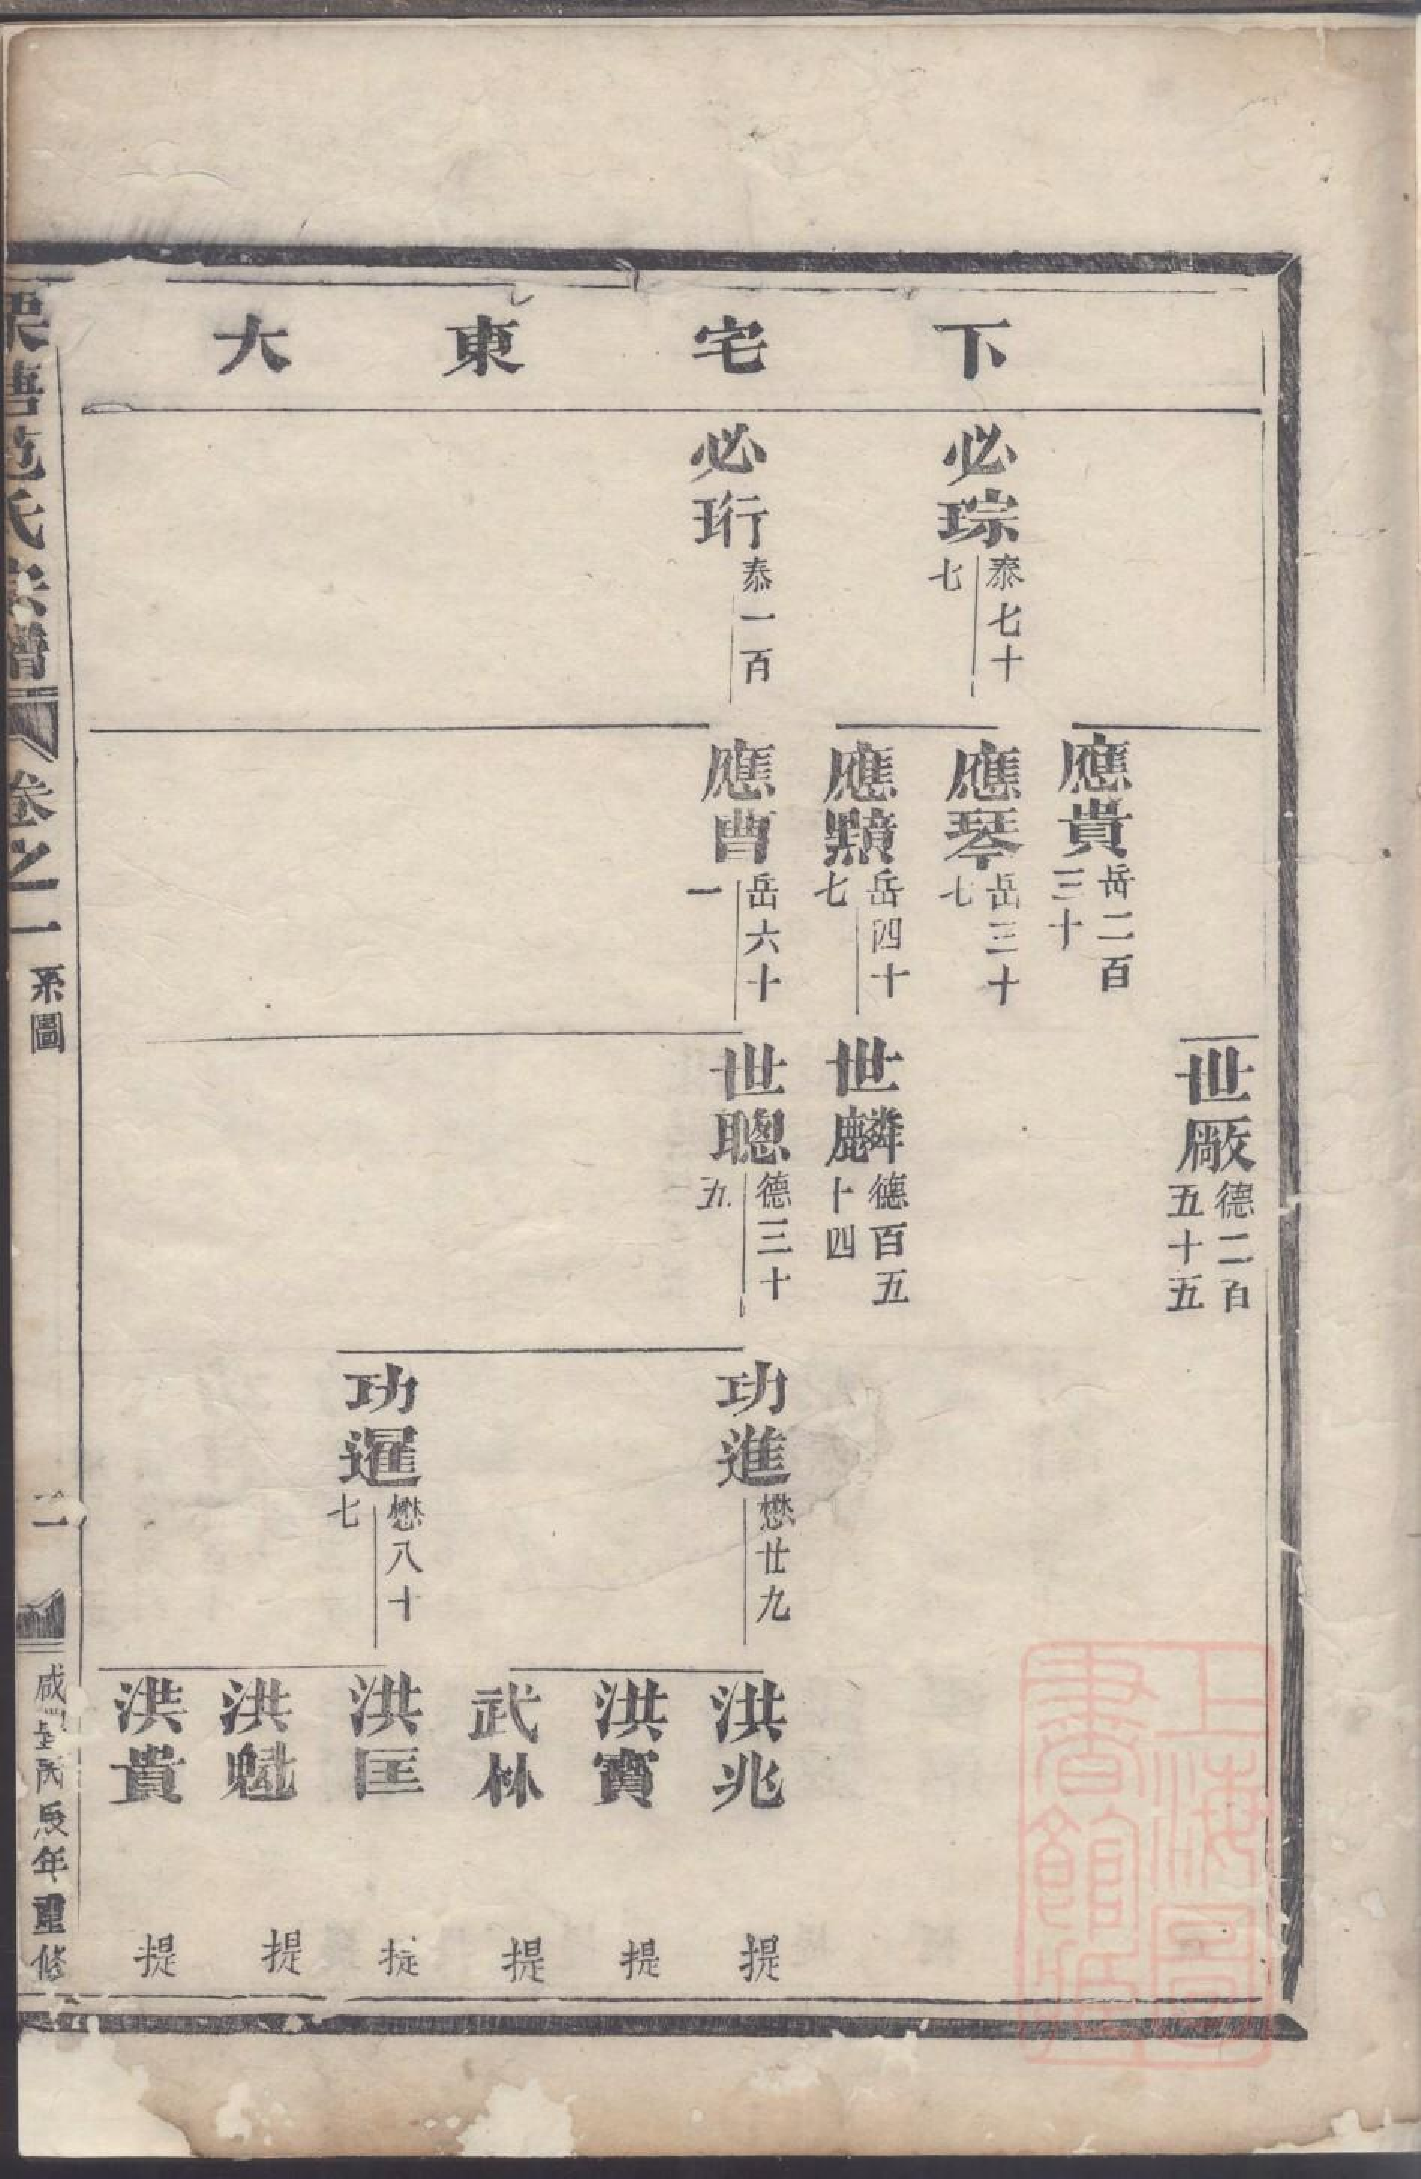 下宅東大
必琮 泰七十七
必珩 泰一百
應貴 岳二百三十
應琴 岳三十七
應䵃 岳四十七
應曹 岳六十一
世厰 德二百五十五
世麟 德百五十四
世聰 德三十五
功進 懋廿九
功暹 懋八十七
洪兆 提
洪寶 提
武林 提
洪匡 提
洪魁 提
洪貴 提
范氏宗譜 卷之一 系圖 二 咸豐丙辰年重修
上海圖書館藏